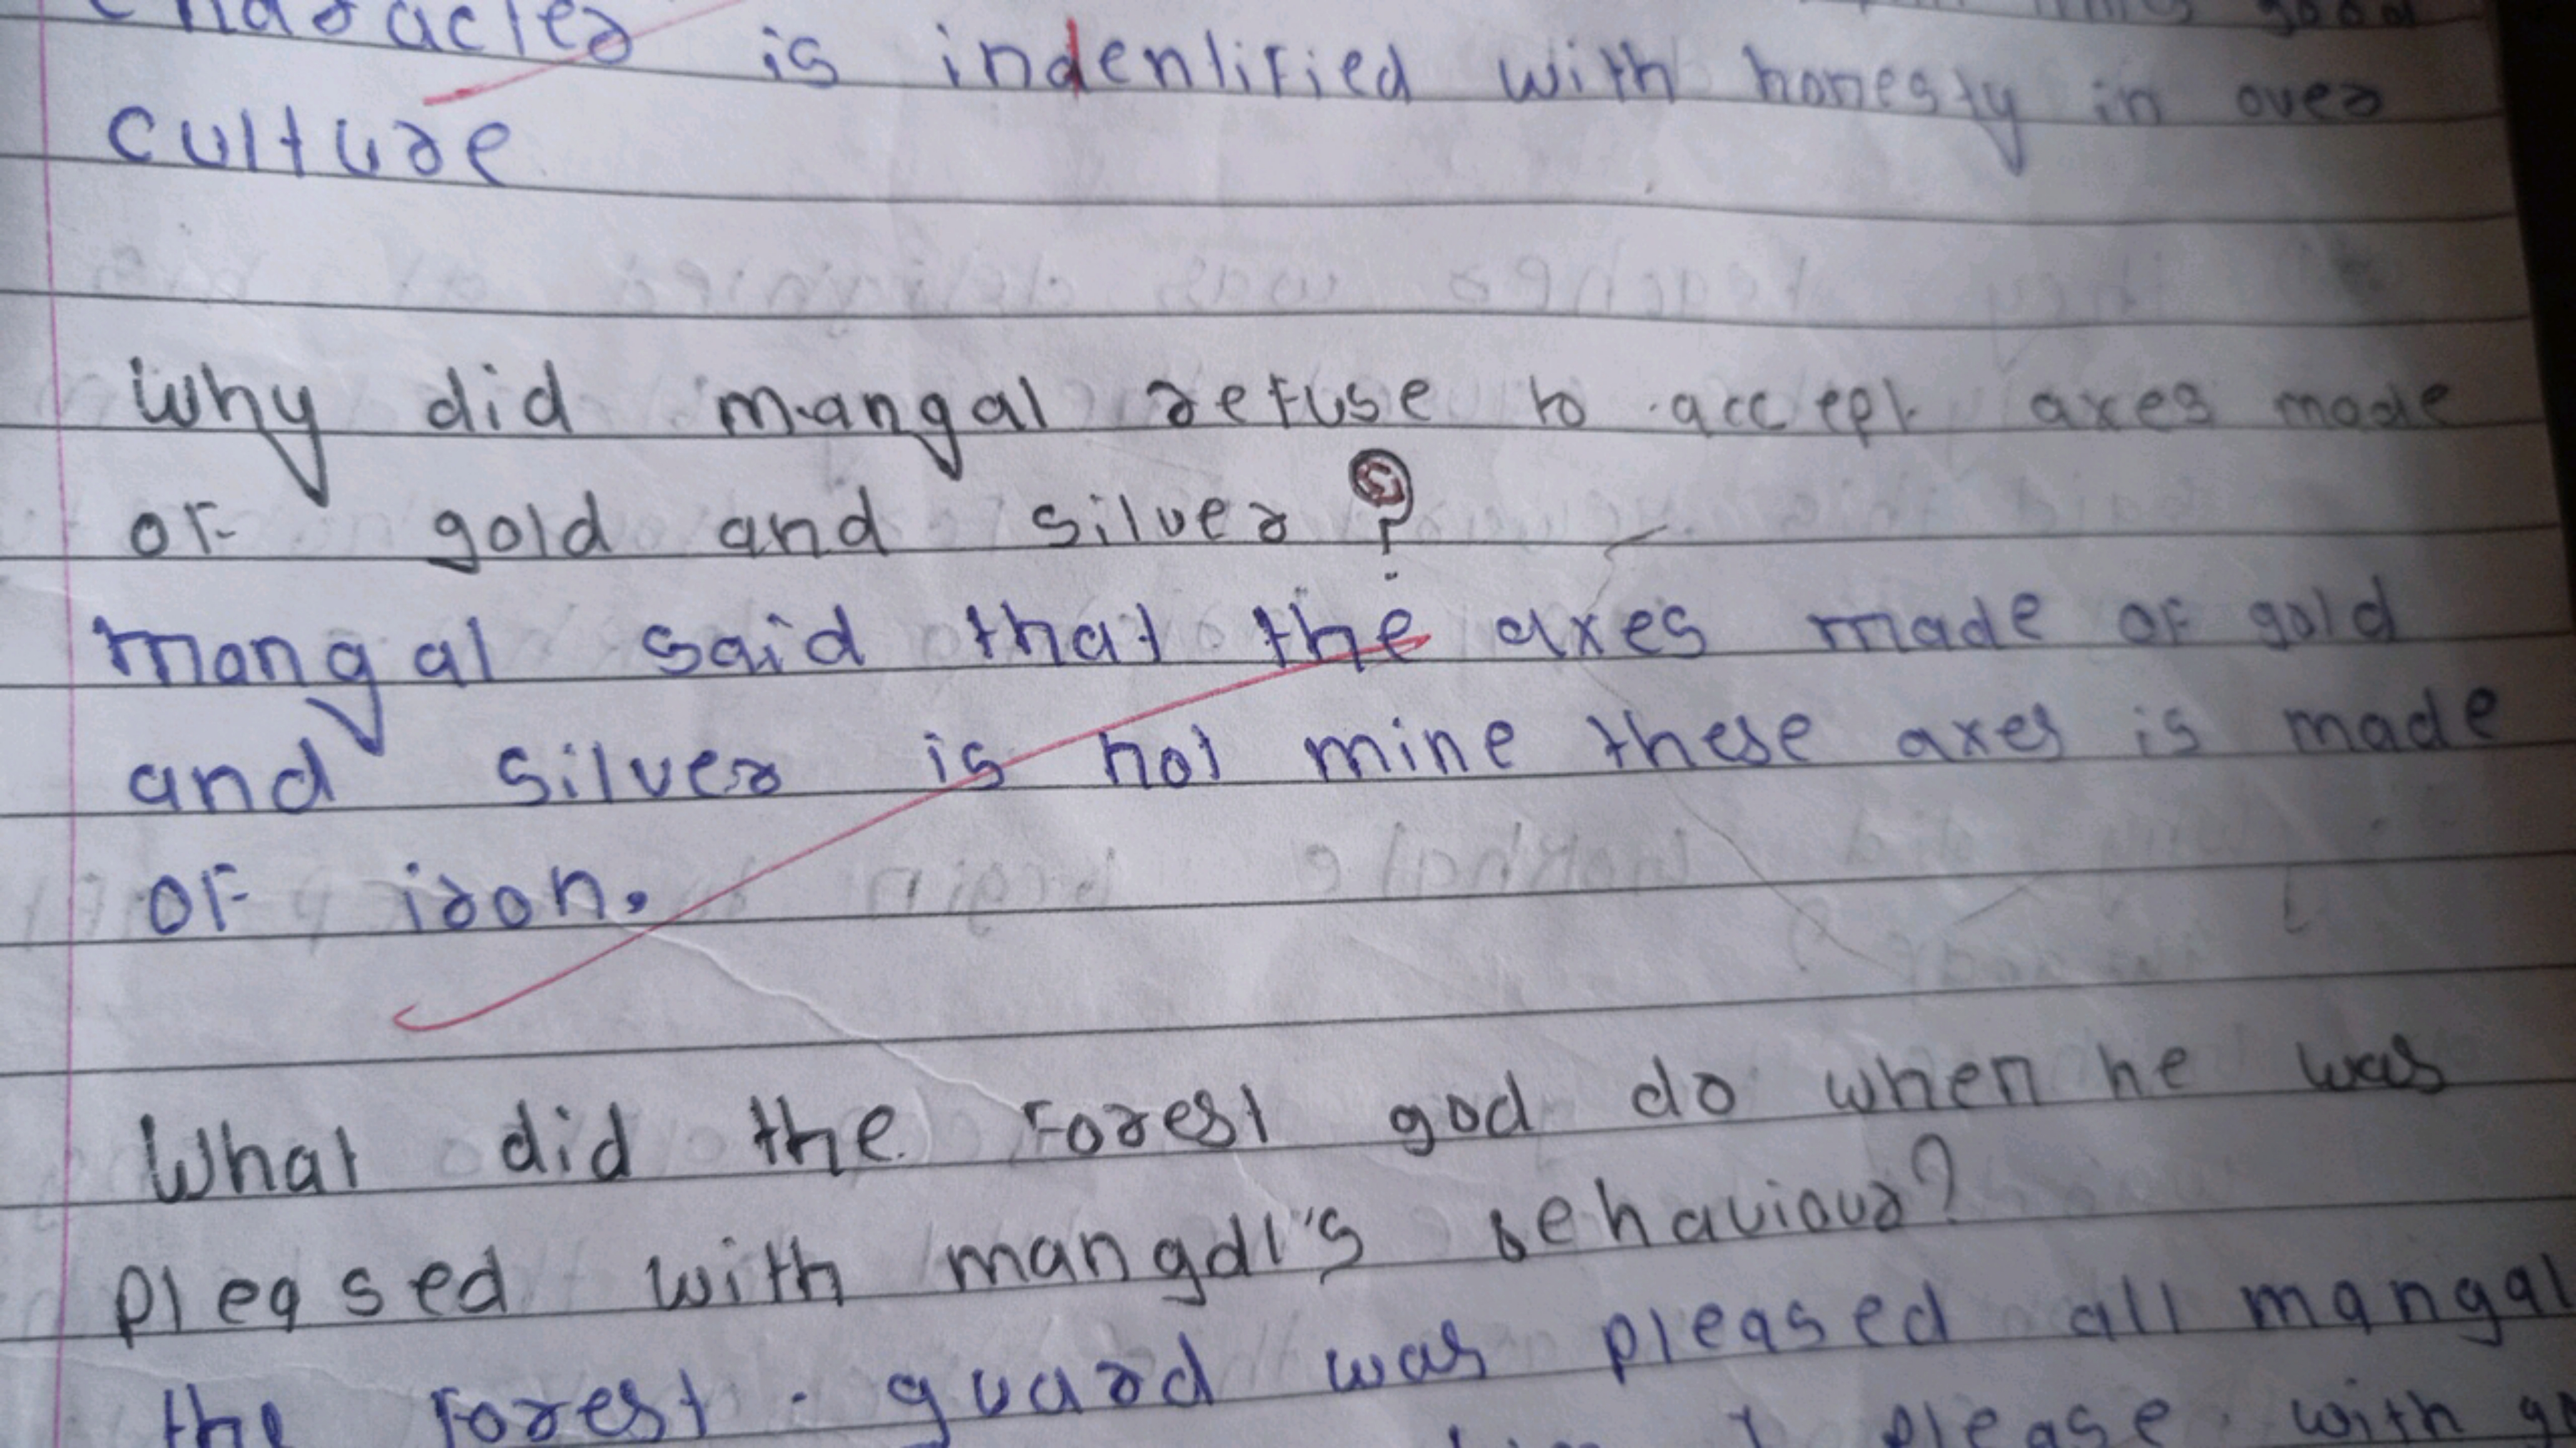 character is indentified with honesty in over
culture
Why did mangal refuse to accept axes made
of gold and silver?
mangal said that the axes made of gold
and silver is not mine these axes is made
of iron.
What did the forest god do when he was
pleased with mangal's behaviour?
the forest guard was pleased all mangal
please with